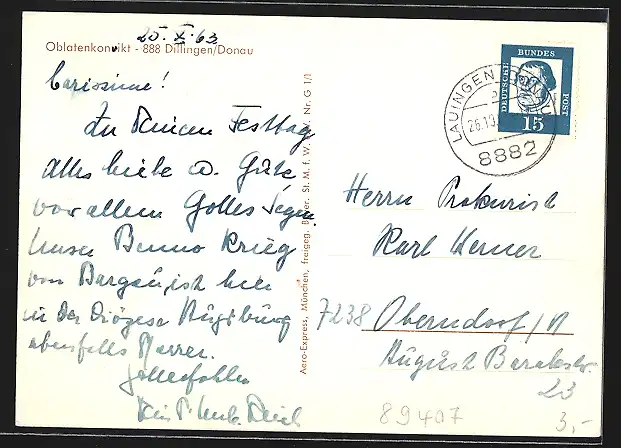 25. X. 63
Oblatenkonvikt - 888 Dillingen/Donau
Carissime!
Zu Deinem Festtag
alles Liebe u. Gute
vor allem Gottes Segen.
Unser Benno Krieg
von Bargau ist hier
in der Diözese Augsburg
ebenfalls Pfarrer.
Gottbefohlen
Dein P.
Aero-Express, München, freigeg. Bayer. St. M. f. W. Nr. G 1/1
DEUTSCHE BUNDES POST
15
LAUINGEN (DONAU)
26.10
8882
Herrn Prokurist
Karl Kerner
7238 Oberndorf/N
August
23
89407
3,-